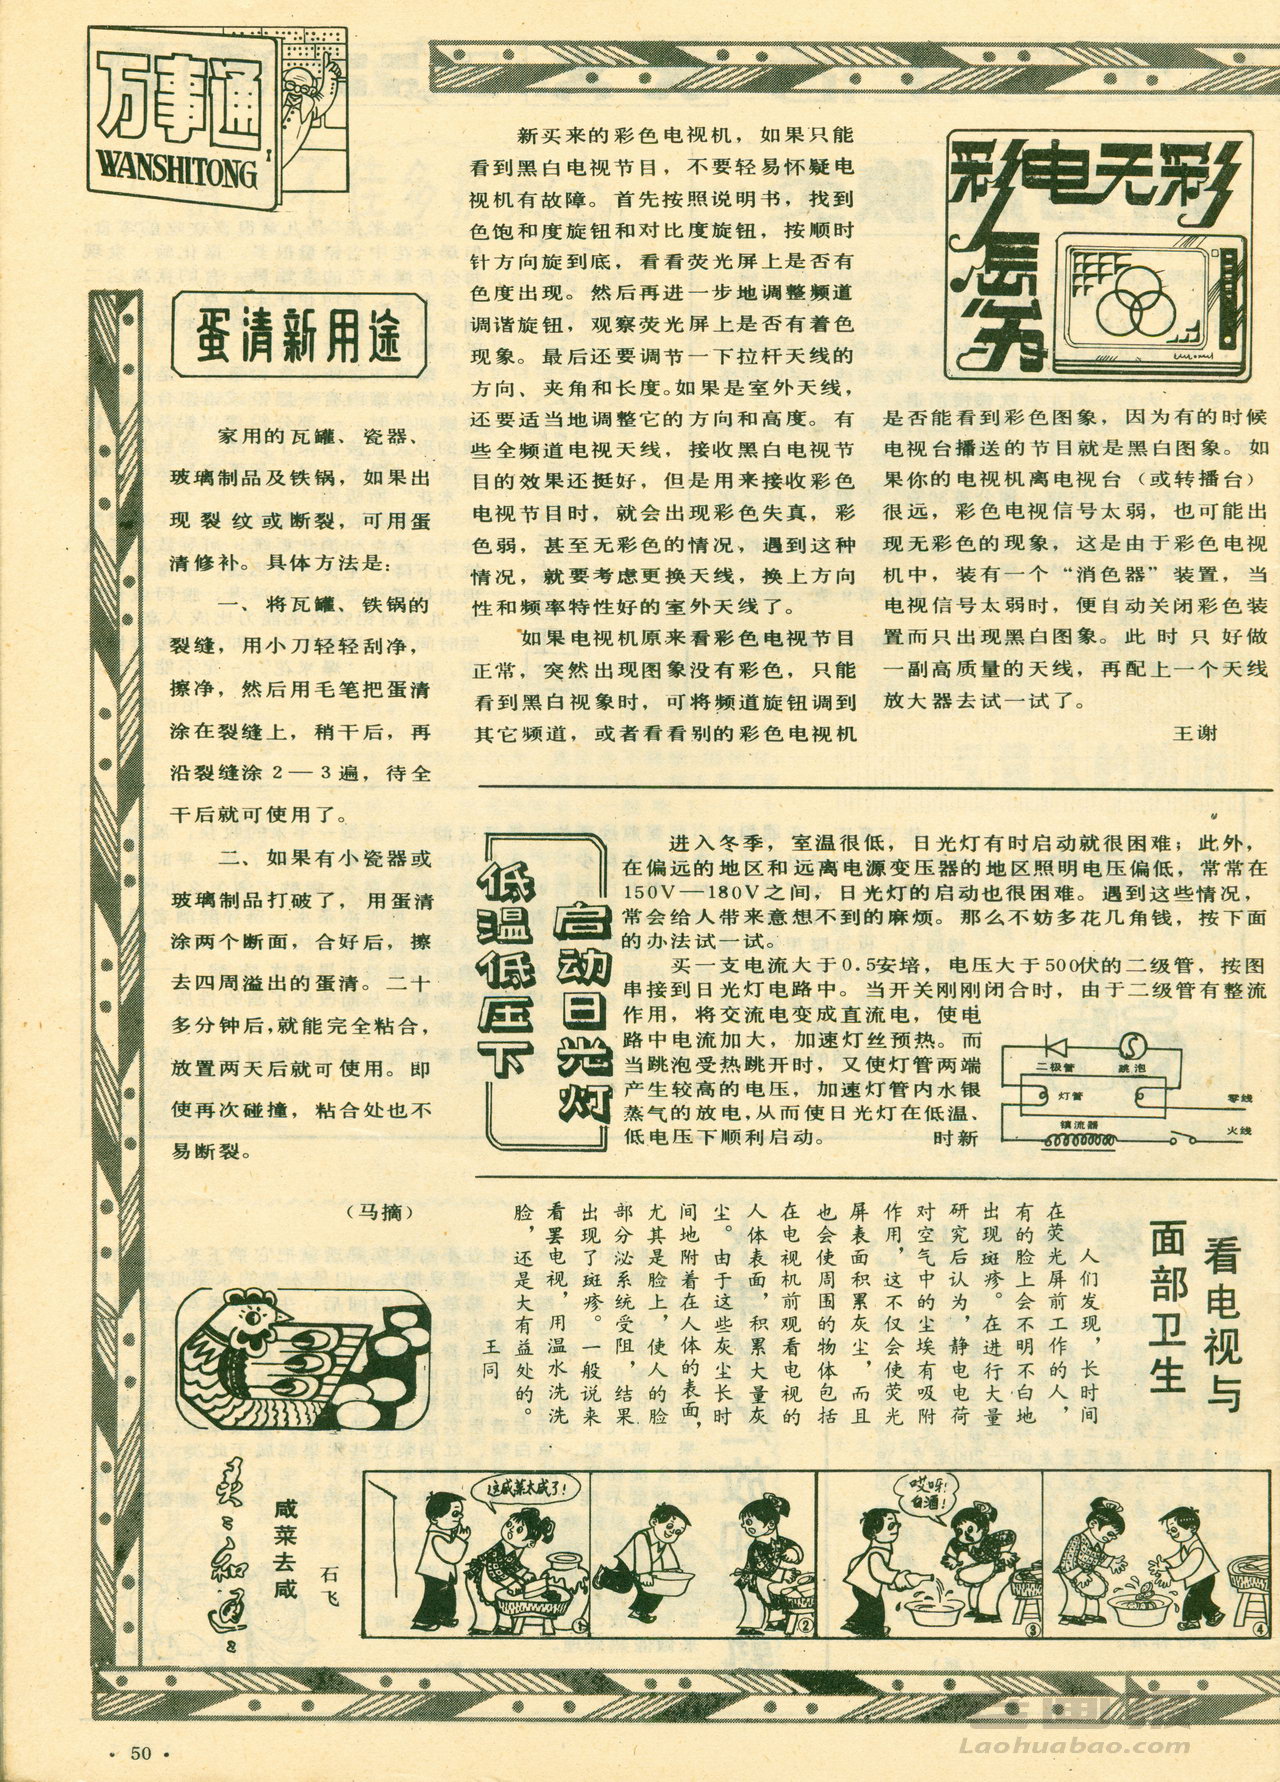 万事通
WANSHITONG
蛋清新用途
家用的瓦罐、瓷器、
玻璃制品及铁锅，如果出
现裂纹或断裂，可用蛋
清修补。具体方法是：
一、将瓦罐、铁锅的
裂缝，用小刀轻轻刮净，
擦净，然后用毛笔把蛋清
涂在裂缝上，稍干后，再
沿裂缝涂2—3遍，待全
干后就可使用了。
二、如果有小瓷器或
玻璃制品打破了，用蛋清
涂两个断面，合好后，擦
去四周溢出的蛋清。二十
多分钟后，就能完全粘合，
放置两天后就可使用。即
使再次碰撞，粘合处也不
易断裂。
（马摘）
彩电无彩
怎办
新买来的彩色电视机，如果只能
看到黑白电视节目，不要轻易怀疑电
视机有故障。首先按照说明书，找到
色饱和度旋钮和对比度旋钮，按顺时
针方向旋到底，看看荧光屏上是否有
色度出现。然后再进一步地调整频道
调谐旋钮，观察荧光屏上是否有着色
现象。最后还要调节一下拉杆天线的
方向、夹角和长度。如果是室外天线，
还要适当地调整它的方向和高度。有
些全频道电视天线，接收黑白电视节
目的效果还挺好，但是用来接收彩色
电视节目时，就会出现彩色失真，彩
色弱，甚至无彩色的情况，遇到这种
情况，就要考虑更换天线，换上方向
性和频率特性好的室外天线了。
如果电视机原来看彩色电视节目
正常，突然出现图象没有彩色，只能
看到黑白视象时，可将频道旋钮调到
其它频道，或者看看别的彩色电视机
是否能看到彩色图象，因为有的时候
电视台播送的节目就是黑白图象。如
果你的电视机离电视台（或转播台）
很远，彩色电视信号太弱，也可能出
现无彩色的现象，这是由于彩色电视
机中，装有一个“消色器”装置，当
电视信号太弱时，便自动关闭彩色装
置而只出现黑白图象。此时只好做
一副高质量的天线，再配上一个天线
放大器去试一试了。
王谢
低温低压下
启动日光灯
进入冬季，室温很低，日光灯有时启动就很困难；此外，
在偏远的地区和远离电源变压器的地区照明电压偏低，常常在
150V—180V之间，日光灯的启动也很困难。遇到这些情况，
常会给人带来意想不到的麻烦。那么不妨多花几角钱，按下面
的办法试一试。
买一支电流大于0.5安培，电压大于500伏的二级管，按图
串接到日光灯电路中。当开关刚刚闭合时，由于二级管有整流
作用，将交流电变成直流电，使电
路中电流加大，加速灯丝预热。而
当跳泡受热跳开时，又使灯管两端
产生较高的电压，加速灯管内水银
蒸气的放电，从而使日光灯在低温、
低电压下顺利启动。
时新
二极管
跳泡
灯管
零线
镇流器
火线
看电视与
面部卫生
人们发现，长时间
在荧光屏前工作的人，
有的脸上会不明不白地
出现斑疹。在进行大量
研究后认为，静电电荷
对空气中的尘埃有吸附
作用，这不仅会使荧光
屏表面积累灰尘，而且
也会使周围的物体包括
在电视机前观看电视的
人体表面，积累大量灰
尘。由于这些灰尘长时
间地附着在人体的表面，
尤其是脸上，使人的脸
部分泌系统受阻，结果
出现了斑疹。一般说来
看罢电视，用温水洗洗
脸，还是大有益处的。
王同
咸菜去咸
石飞
这咸菜太咸了！
①
②
哎呀！
白酒！
③
④
· 50 ·
老画报
Laohuabao.com